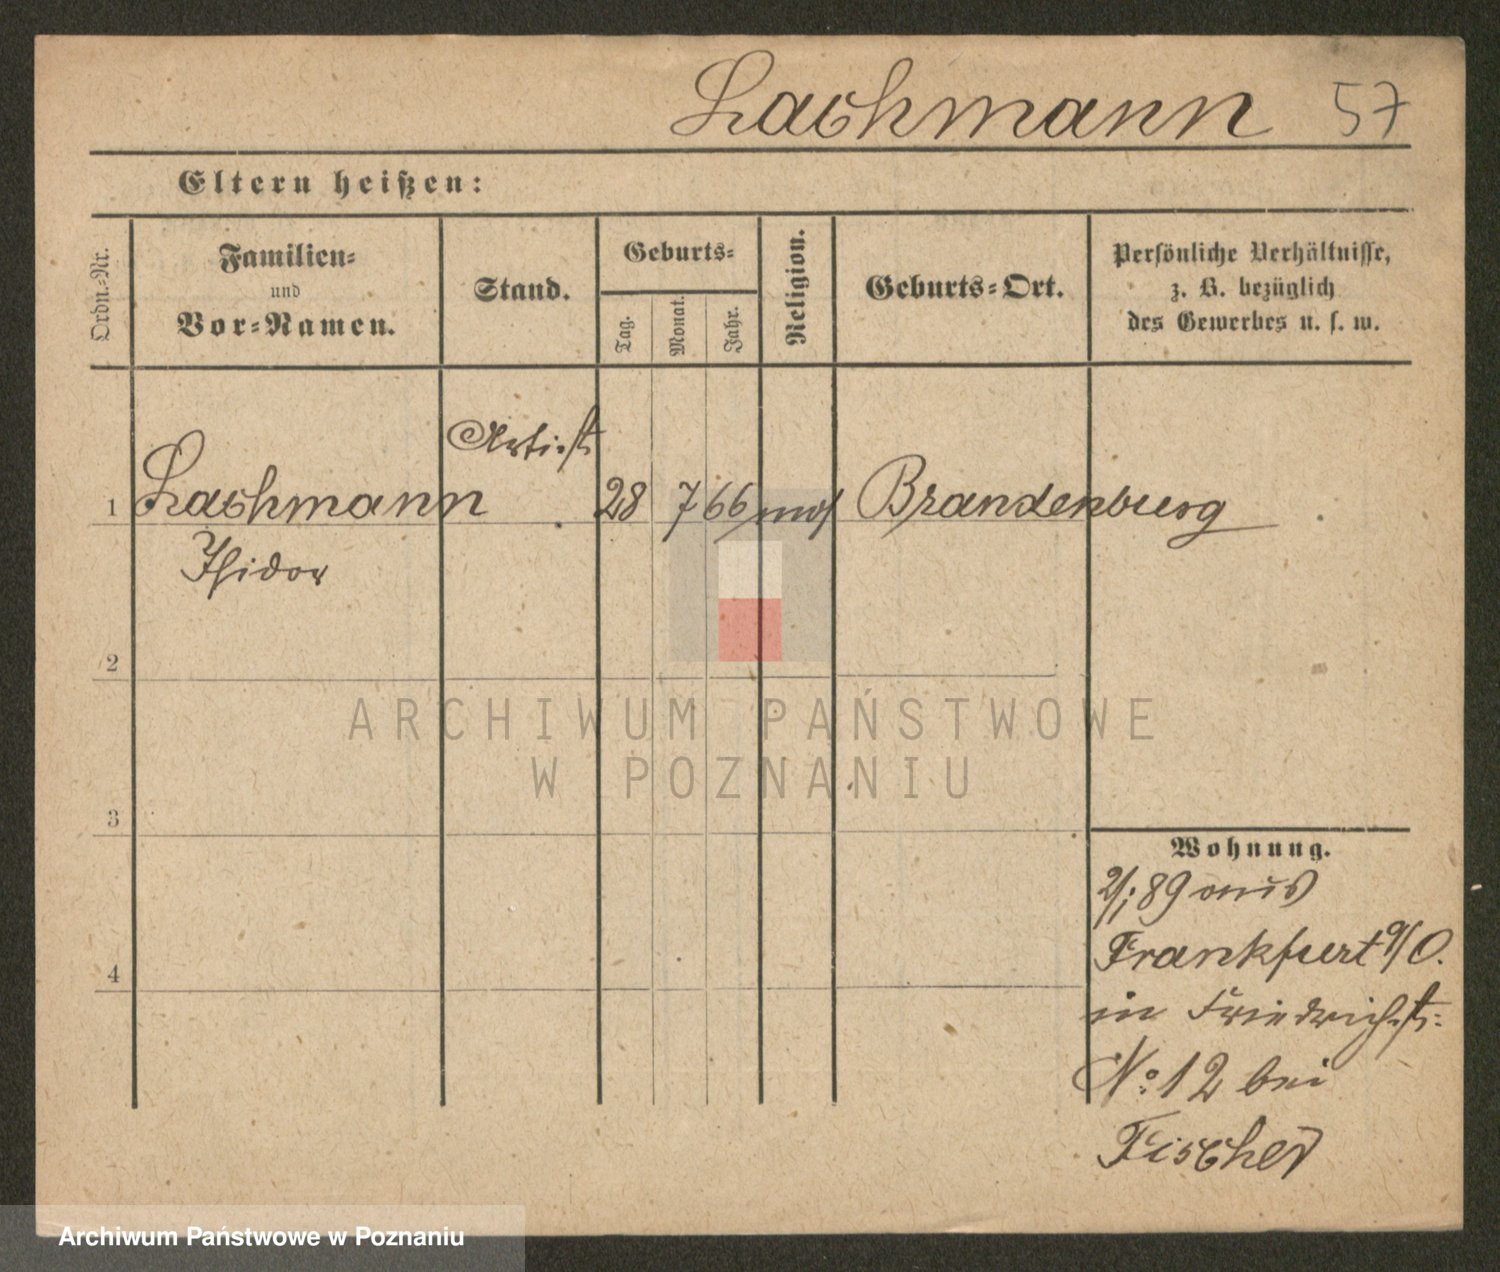 Lachmann 57
Eltern heißen:
Ordn.-Nr.
Familien-
und
Vor-Namen.
Stand.
Geburts-
Tag.
Monat.
Jahr.
Religion.
Geburts-Ort.
Persönliche Verhältnisse,
z. B. bezüglich
des Gewerbes u. s. w.
Artist
1 Lachmann 28 7 66 mos Brandenburg
Isidor
2
ARCHIWUM PAŃSTWOWE
W POZNANIU
3
Wohnung.
89 aus
Frankfurt a/O.
4
in Friedrichst:
No 12 bei
Fischer
Archiwum Państwowe w Poznaniu